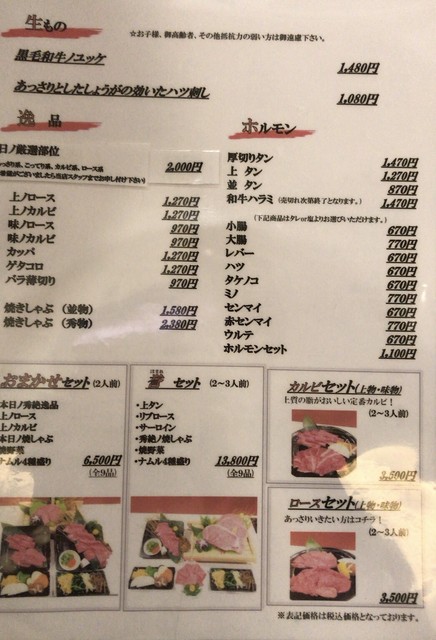 生もの
☆お子様、御高齢者、その他抵抗力の弱い方は御遠慮下さい。
黒毛和牛ノユッケ 1,480円
あっさりとしたしょうがの効いたハツ刺し 1,080円
逸品
日ノ厳選部位 2,000円
っさり系、こってり系、カルビ系、ロース系
がございましたら当店スタッフまでお申し付け下さい)
上ノロース 1,270円
上ノカルビ 1,270円
味ノロース 970円
味ノカルビ 970円
カッパ 1,270円
ゲタコロ 1,270円
バラ薄切り 970円
焼きしゃぶ (並物) 1,580円
焼きしゃぶ (秀物) 2,380円
ホルモン
厚切りタン 1,470円
上 タン 1,270円
並 タン 870円
和牛ハラミ (売切れ次第終了となります。) 1,470円
(下記商品はタレor塩よりお選びいただけます。)
小腸 670円
大腸 770円
レバー 670円
ハツ 670円
タケノコ 670円
ミノ 770円
センマイ 670円
赤センマイ 770円
ウルテ 670円
ホルモンセット 1,100円
おまかせセット(2人前)
本日ノ秀絶逸品
上ノロース
上ノカルビ
本日ノ焼しゃぶ
焼野菜
ナムル4種盛り 6,500円
(全9品)
セット (2～3人前)
・上タン
・リブロース
・サーロイン
・秀絶ノ焼しゃぶ
・焼野菜
・ナムル4種盛り 13,800円
(全9品)
カルビセット(上物・味物)
上質の脂がおいしい定番カルビ！
(2～3人前)
3,500円
ロースセット(上物・味物)
あっさりいきたい方はコチラ！
(2～3人前)
3,500円
※表記価格は税込価格となっております。